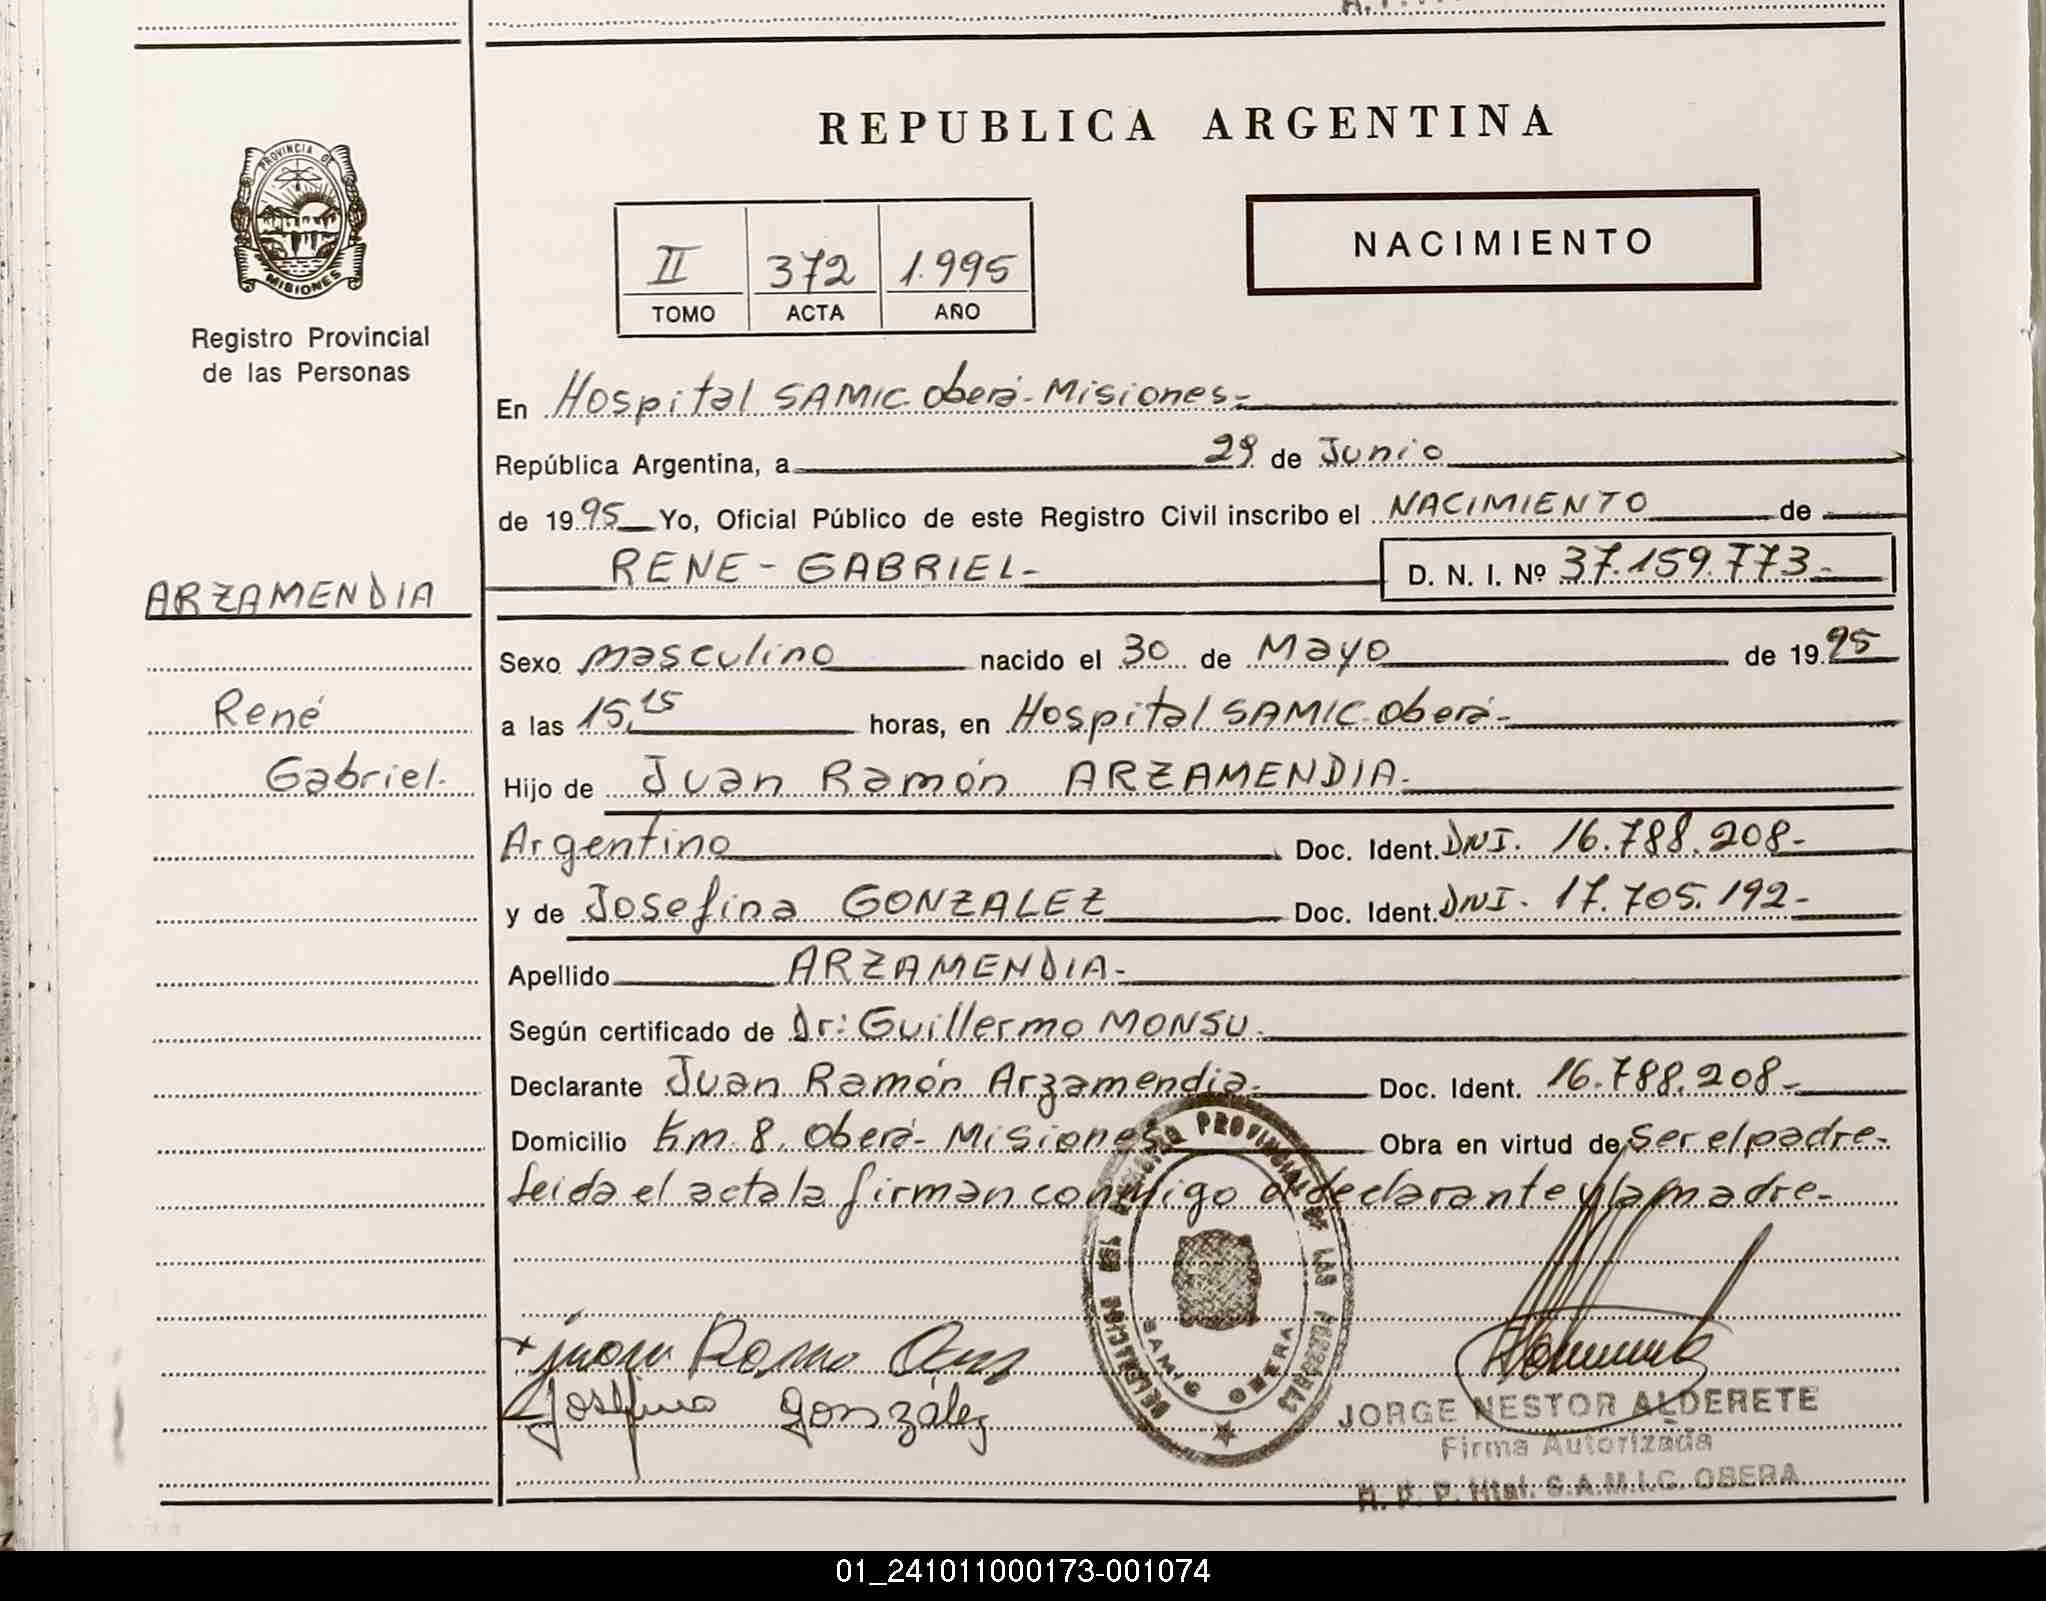 PROVINCIA DE
MISIONES
Registro Provincial
de las Personas
ARZAMENDIA
René
Gabriel.
REPUBLICA ARGENTINA
II 372 1.995
TOMO ACTA AÑO
NACIMIENTO
En Hospital SAMIC. Oberá-Misiones-
República Argentina, a 29 de Junio
de 1995 Yo, Oficial Público de este Registro Civil inscribo el NACIMIENTO de
RENE - GABRIEL- D. N. I. Nº 37.159.773-
Sexo masculino nacido el 30 de Mayo de 1995
a las 15,15 horas, en Hospital SAMIC. Oberá-
Hijo de Juan Ramón ARZAMENDIA.
Argentino Doc. Ident. DNI. 16.788.208-
y de Josefina GONZALEZ Doc. Ident. DNI. 17.705.192-
Apellido ARZAMENDIA-
Según certificado de Dr: Guillermo MONSU.
Declarante Juan Ramón Arzamendia. Doc. Ident. 16.788.208-
Domicilio Km. 8. Oberá- Misiones Obra en virtud de ser el padre-
Leida el acta la firman conmigo el declarante y la madre-
DELEGACION DEL REGISTRO PROVINCIAL DE LAS PERSONAS
SAMIC OBERA
Josefina González
JORGE NESTOR ALDERETE
Firma Autorizada
R. P. P. Htal. S.A.M.I.C. OBERA
01_241011000173-001074